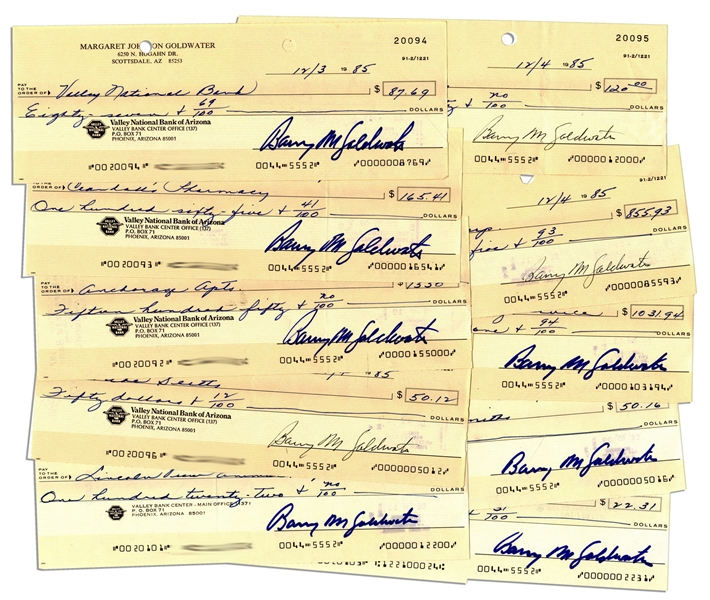 MARGARET JOHNSON GOLDWATER
6250 N. HOGAHN DR.
SCOTTSDALE, AZ 85253
20094
91-2/1221
12/3 1985
PAY TO THE ORDER OF Valley National Bank $ 87.69
Eighty-seven & 69/100 DOLLARS
Valley National Bank of Arizona
VALLEY BANK CENTER OFFICE (137)
P.O. BOX 71
PHOENIX, ARIZONA 85001
Barry M Goldwater
⑈0020094⑈ 0044⑉5552⑈ ⑆0000008769⑆
20095
91-2/1221
12/4 1985
$ 120.00
no/100 DOLLARS
Barry M Goldwater
0044⑉5552⑈ ⑆0000012000⑆
ORDER OF Pharmacy $ 165.41
One hundred sixty-five & 41/100 DOLLARS
Valley National Bank of Arizona
VALLEY BANK CENTER OFFICE (137)
P.O. BOX 71
PHOENIX, ARIZONA 85001
Barry M Goldwater
⑈0020093⑈ 0044⑉5552⑈ ⑆0000016541⑆
91-2/1221
12/4 1985
$ 855.93
five & 93/100 DOLLARS
Barry M Goldwater
0044⑉5552⑈ ⑆0000085593⑆
ORDER OF Anchorage Apts. $ 1550
Fifteen hundred fifty & no/100 DOLLARS
Valley National Bank of Arizona
VALLEY BANK CENTER OFFICE (137)
P.O. BOX 71
PHOENIX, ARIZONA 85001
Barry M Goldwater
⑈0020092⑈ 0044⑉5552⑈ ⑆0000155000⑆
$ 1031.94
one & 94/100 DOLLARS
Barry M Goldwater
0044⑉5552⑈ ⑆0000103194⑆
1985
ORDER OF $ 50.12
Fifty dollars & 12/100 DOLLARS
Valley National Bank of Arizona
VALLEY BANK CENTER OFFICE (137)
P.O. BOX 71
PHOENIX, ARIZONA 85001
Barry M Goldwater
⑈0020096⑈ 0044⑉5552⑈ ⑆0000005012⑆
$ 50.16
DOLLARS
Barry M Goldwater
0044⑉5552⑈ ⑆0000005016⑆
PAY TO THE ORDER OF Lincoln View
One hundred twenty-two & no/100 DOLLARS
VALLEY BANK CENTER - MAIN OFFICE
P.O. BOX 71
PHOENIX, ARIZONA 85001
Barry M Goldwater
⑈0020101⑈ 0044⑉5552⑈ ⑆0000012200⑆
$ 22.31
& 31/100 DOLLARS
Barry M Goldwater
0044⑉5552⑈ ⑆0000002231⑆
0020103⑈ ⑆122100024⑆